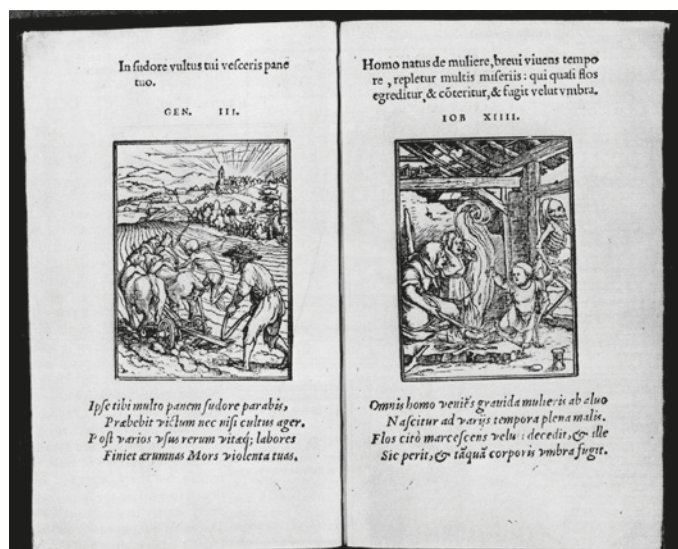 In sudore vultus tui vesceris pane
tuo.
GEN. III.
Ipse tibi multo panem sudore parabis,
Præbebit victum nec nisi cultus ager.
Post varios vsus rerum vitæq; labores
Finiet ærumnas Mors violenta tuas.
Homo natus de muliere, breui viuens tempo
re, repletur multis miseriis: qui quasi flos
egreditur, & cōteritur, & fugit velut vmbra.
IOB XIIII.
Omnis homo veniēs grauida mulieris ab aluo
Nascitur ad varijs tempora plena malis.
Flos citò marcescens velut decedit, & ille
Sic perit, & tāquā corporis vmbra fugit.